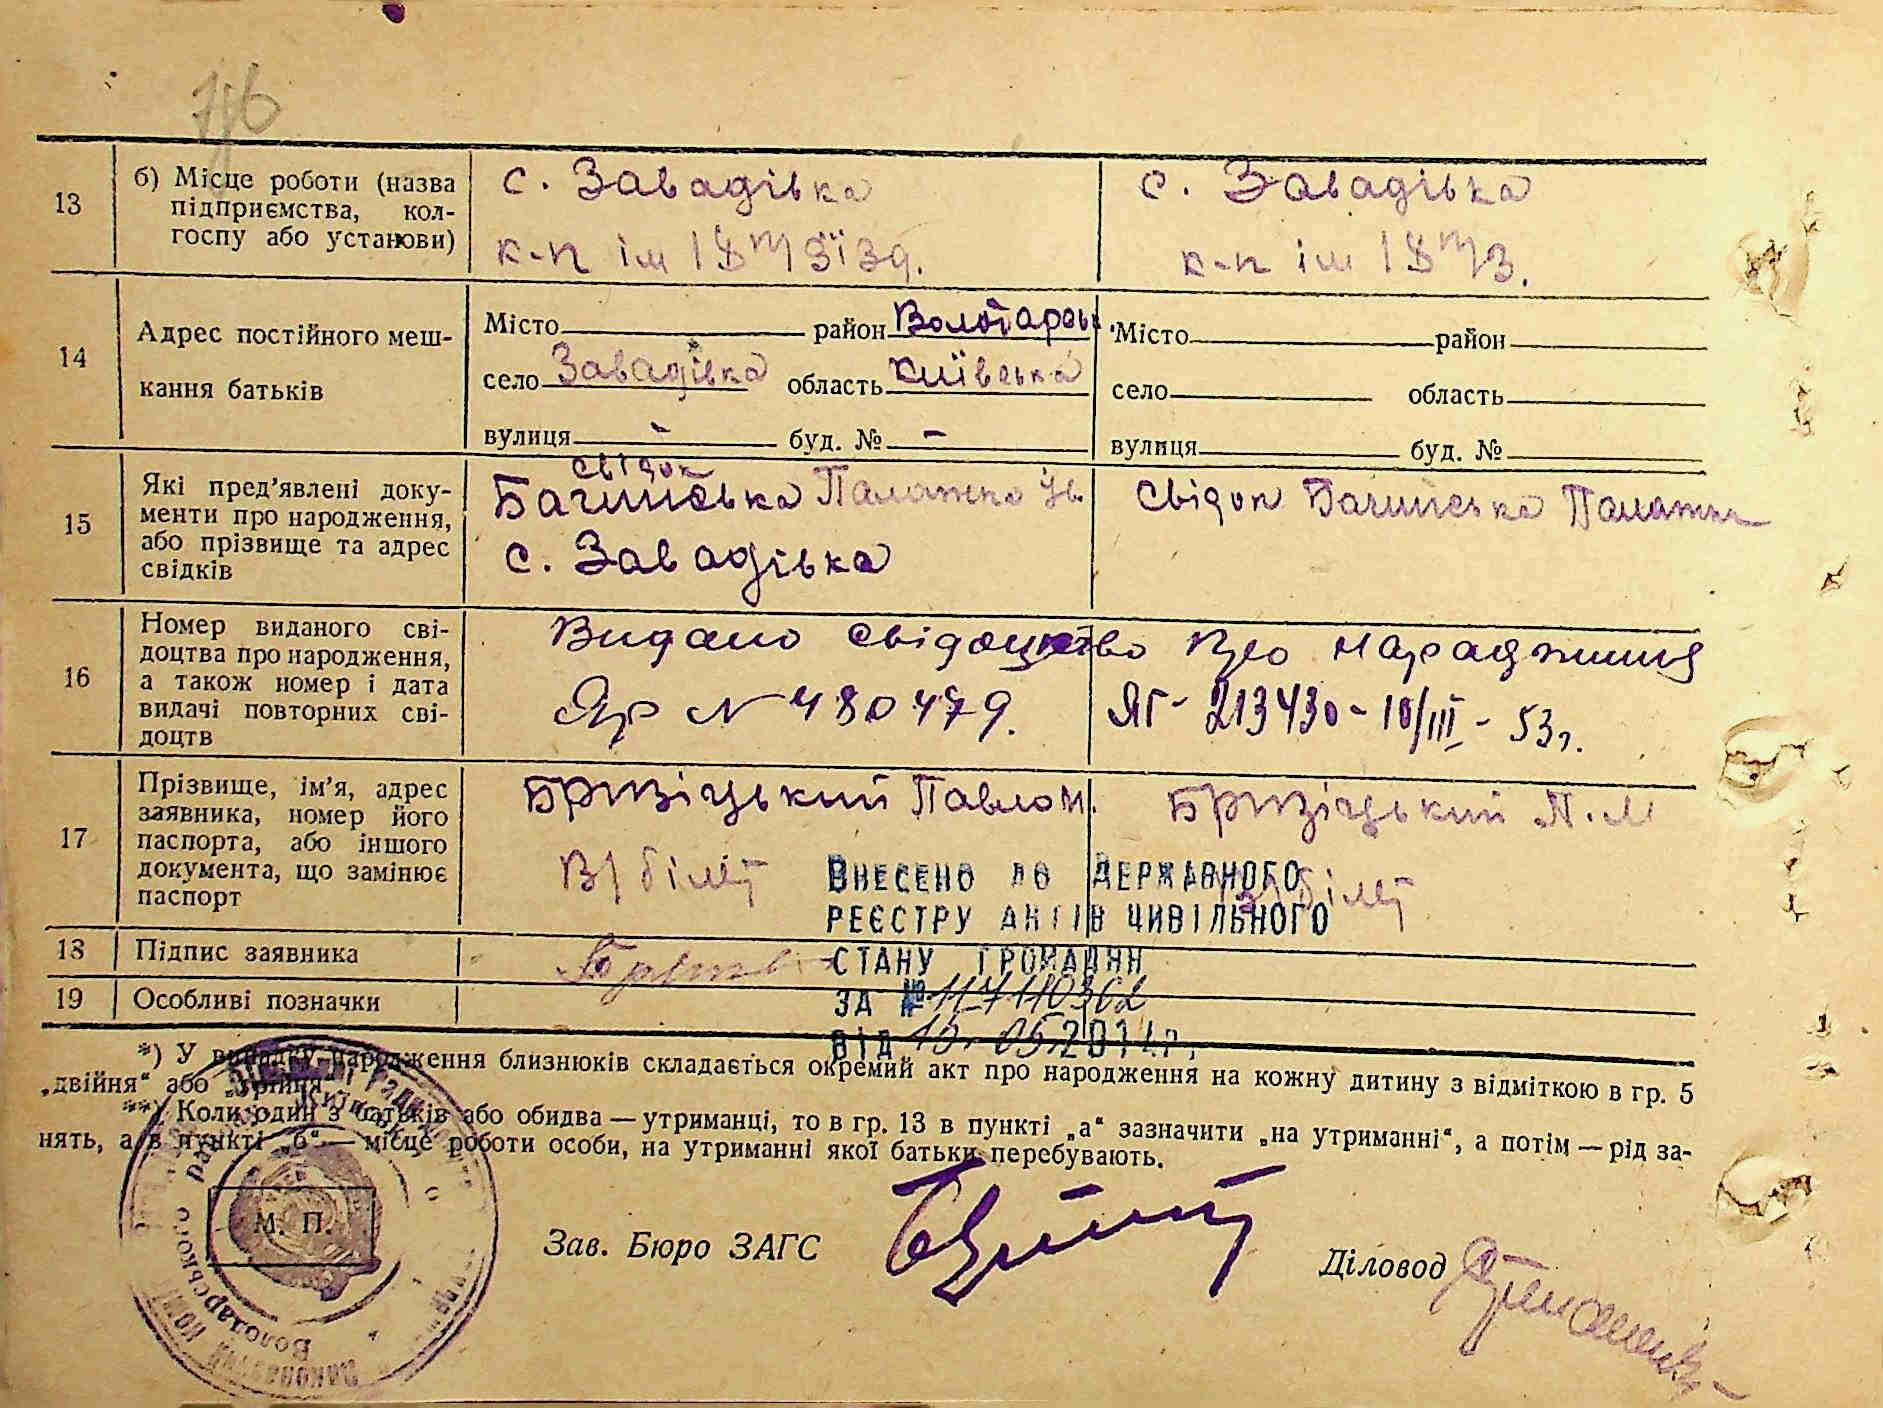 13 б) Місце роботи (назва підприємства, кол-госпу або установи)
с. Завадівка
к-п ім 18 m/зїзд.
с. Завадівка
к-п ім 18 m/з.
14 Адрес постійного меш-
кання батьків
Місто район Володарськ
село Завадівка область Київська
вулиця - буд. № -
Місто район
село область
вулиця буд. №
15 Які пред'явлені доку-
менти про народження,
або прізвище та адрес
свідків
свідок
Бачинська Палажка Ів.
с. Завадівка
свідок Бачинська Палажк
16 Номер виданого сві-
доцтва про народження,
а також номер і дата
видачі повторних сві-
доцтв
Видано свідоцтво про народження
N 480479. ЯГ- 213430 - 10/III - 53 г.
17 Прізвище, ім'я, адрес
заявника, номер його
паспорта, або іншого
документа, що замінює
паспорт
Бризіцький Павло М.
В/білет
Бризіцький П.М
В/білет
18 Підпис заявника
19 Особливі позначки
ВНЕСЕНО ДО ДЕРЖАВНОГО
РЕЄСТРУ АКТІВ ЦИВІЛЬНОГО
СТАНУ ГРОМАДЯН
ЗА №
ВІД 05.2011р.
*) У випадку народження близнюків складається окремий акт про народження на кожну дитину з відміткою в гр. 5
„двійня“ або „трійня“
**) Коли один з батьків або обидва — утриманці, то в гр. 13 в пункті „а“ зазначити „на утриманні“, а потім — рід за-
нять, а в пункті „б“ — місце роботи особи, на утриманні якої батьки перебувають.
М. П.
Володарського
Зав. Бюро ЗАГС
Діловод